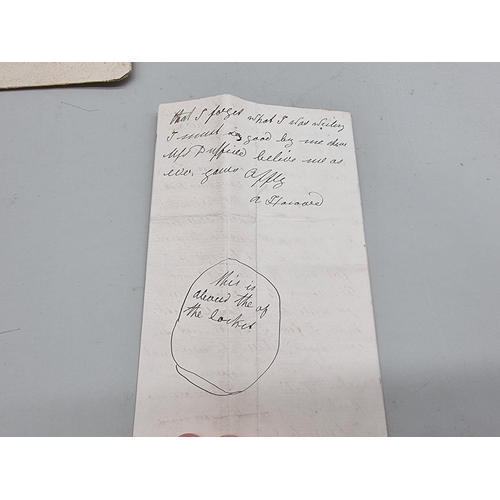 that I forget what I was writing
I must say good by me dear
Mrs Duffield believe me as
ever yours Affly
A Howard
this is
about the of
the locket